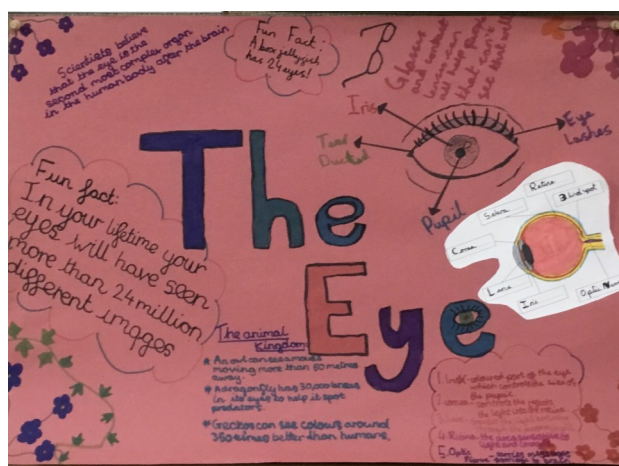 Scientists believe
that the eye is the
second most complex organ
in the human body after the brain
Fun Fact:
A box jellyfish
has 24 eyes!
Glasses
and contact
lenses can
all help people
that can't
see that well
Iris
Eye
Lashes
Tear
Ducked
Pupil
The
Eye
Fun fact:
In your lifetime your
eyes will have seen
more than 24 million
different images
Retina
Blind spot
Sclera
Cornea
Lens
Iris
Optic
The animal
Kingdom
An owl can see a mouse
moving more than 50 metres
away.
A dragonfly has 30,000 lenses
in its eyes to help it spot
predators.
Geckos can see colours around
350 times better than humans.
1. Iris - colourful part of the eye
which controls the size of
the pupil.
the light into the retina
5. Optic - carries messages